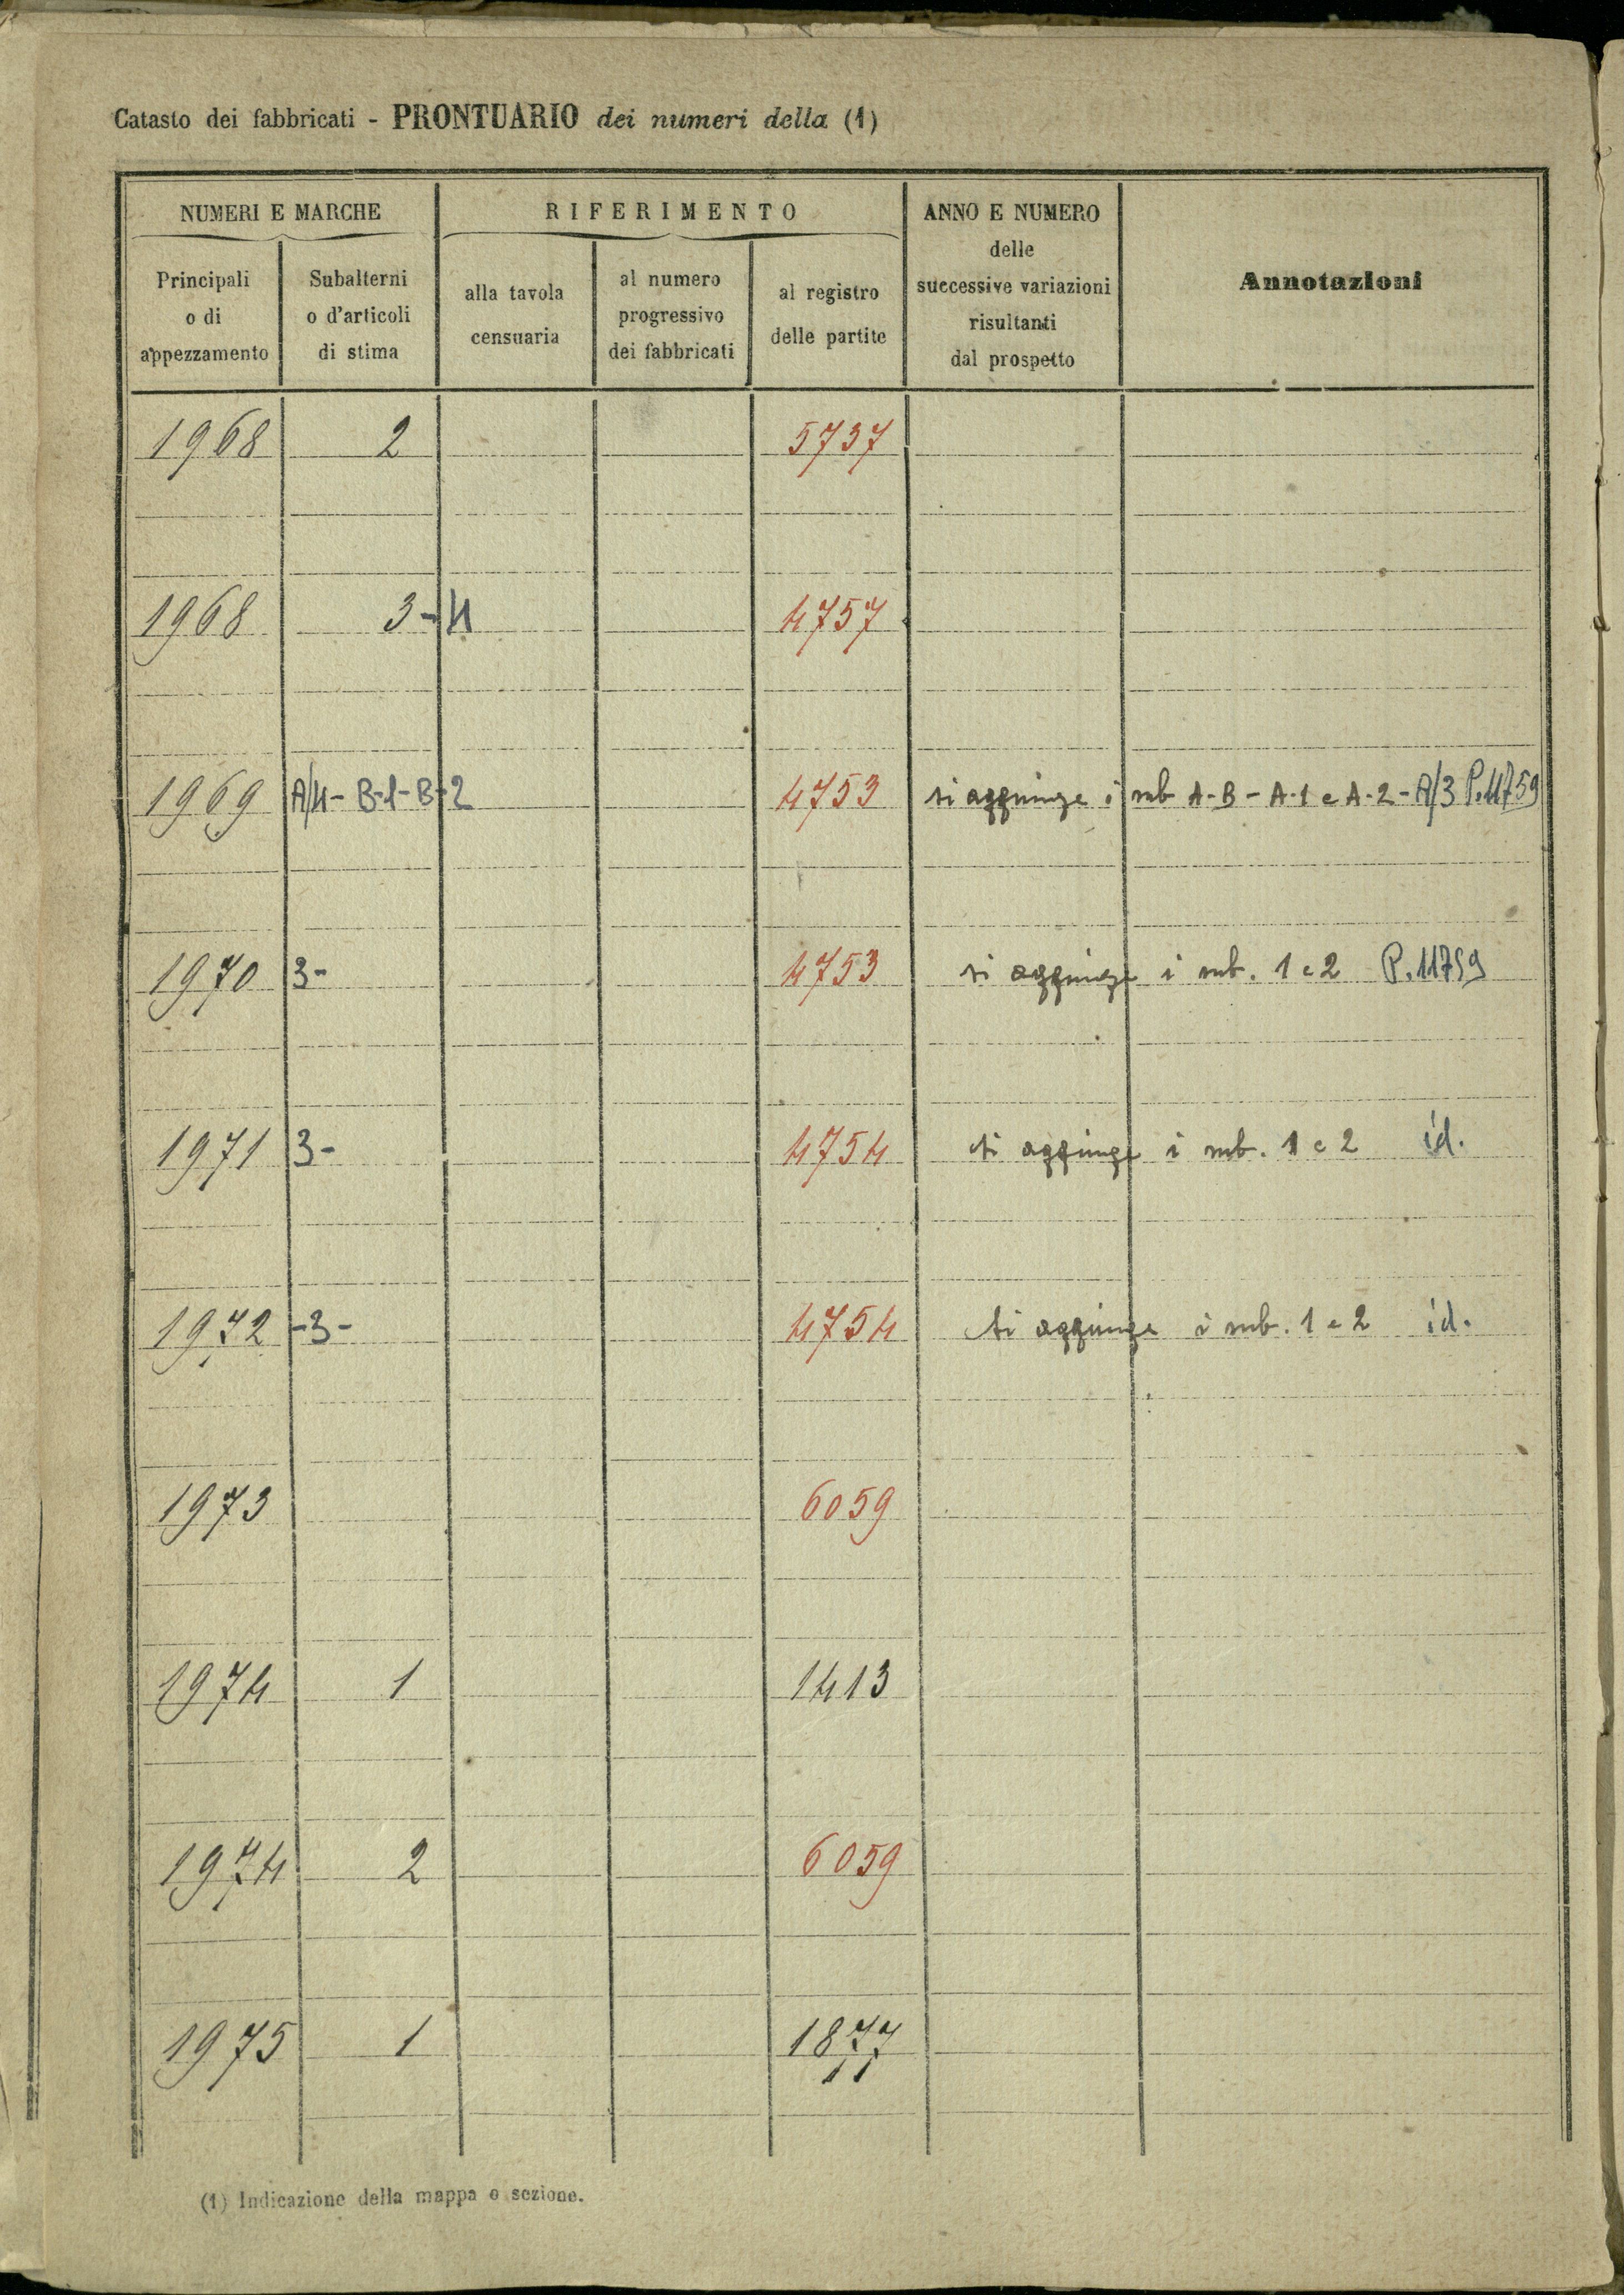 Catasto dei fabbricati - PRONTUARIO dei numeri della (1)
NUMERI E MARCHE
RIFERIMENTO
ANNO E NUMERO
delle
successive variazioni
risultanti
dal prospetto
Annotazioni
Principali
o di
appezzamento
Subalterni
o d'articoli
di stima
alla tavola
censuaria
al numero
progressivo
dei fabbricati
al registro
delle partite
1968 2 5737
1968 3-4 4757
1969 A/4- B-1- B-2 4753 si aggiunge i sub A-B - A-1 e A-2 - A/3 P.11759
1970 3- 4753 si aggiunge i sub. 1 e 2 P.11759
1971 3- 4754 si aggiunge i sub. 1 e 2 id.
1972 -3- 4754 si aggiunge i sub. 1 e 2 id.
1973 6059
1974 1 1413
1974 2 6059
1975 1 1877
(1) Indicazione della mappa o sezione.